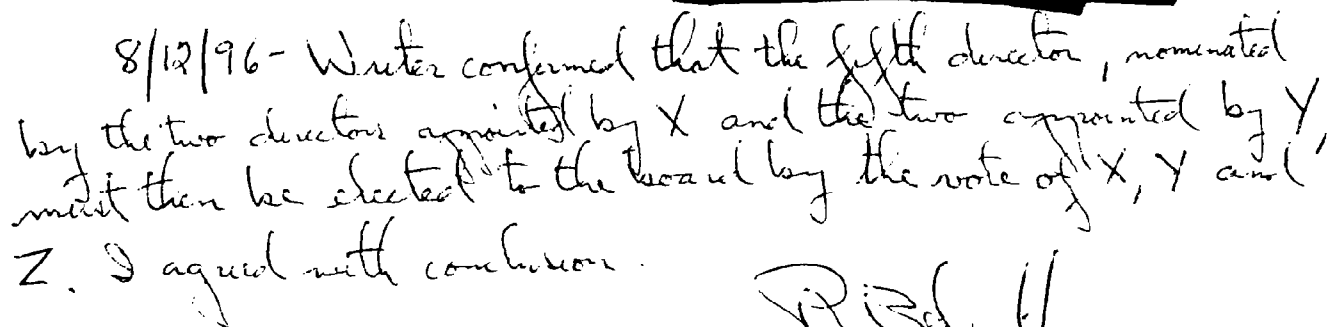 8/12/96- Writer confirmed that the fifth director, nominated
by the two directors appointed by X and the two appointed by Y,
must then be elected to the board by the vote of X, Y and
Z. I agreed with conclusion.